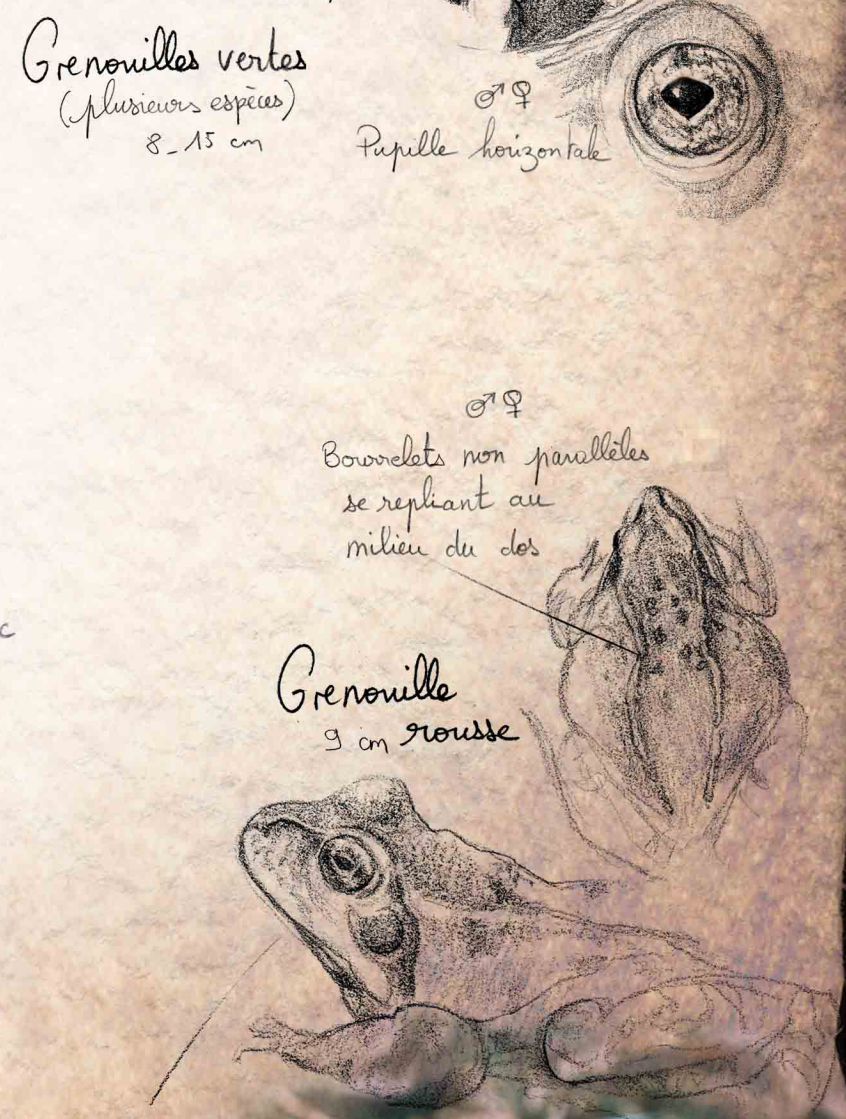 Grenouilles vertes
(plusieurs espèces)
8_15 cm
♂♀
Pupille horizontale
♂♀
Bourrelets non parallèles
se repliant au
milieu du dos
c
Grenouille
9 cm rousse